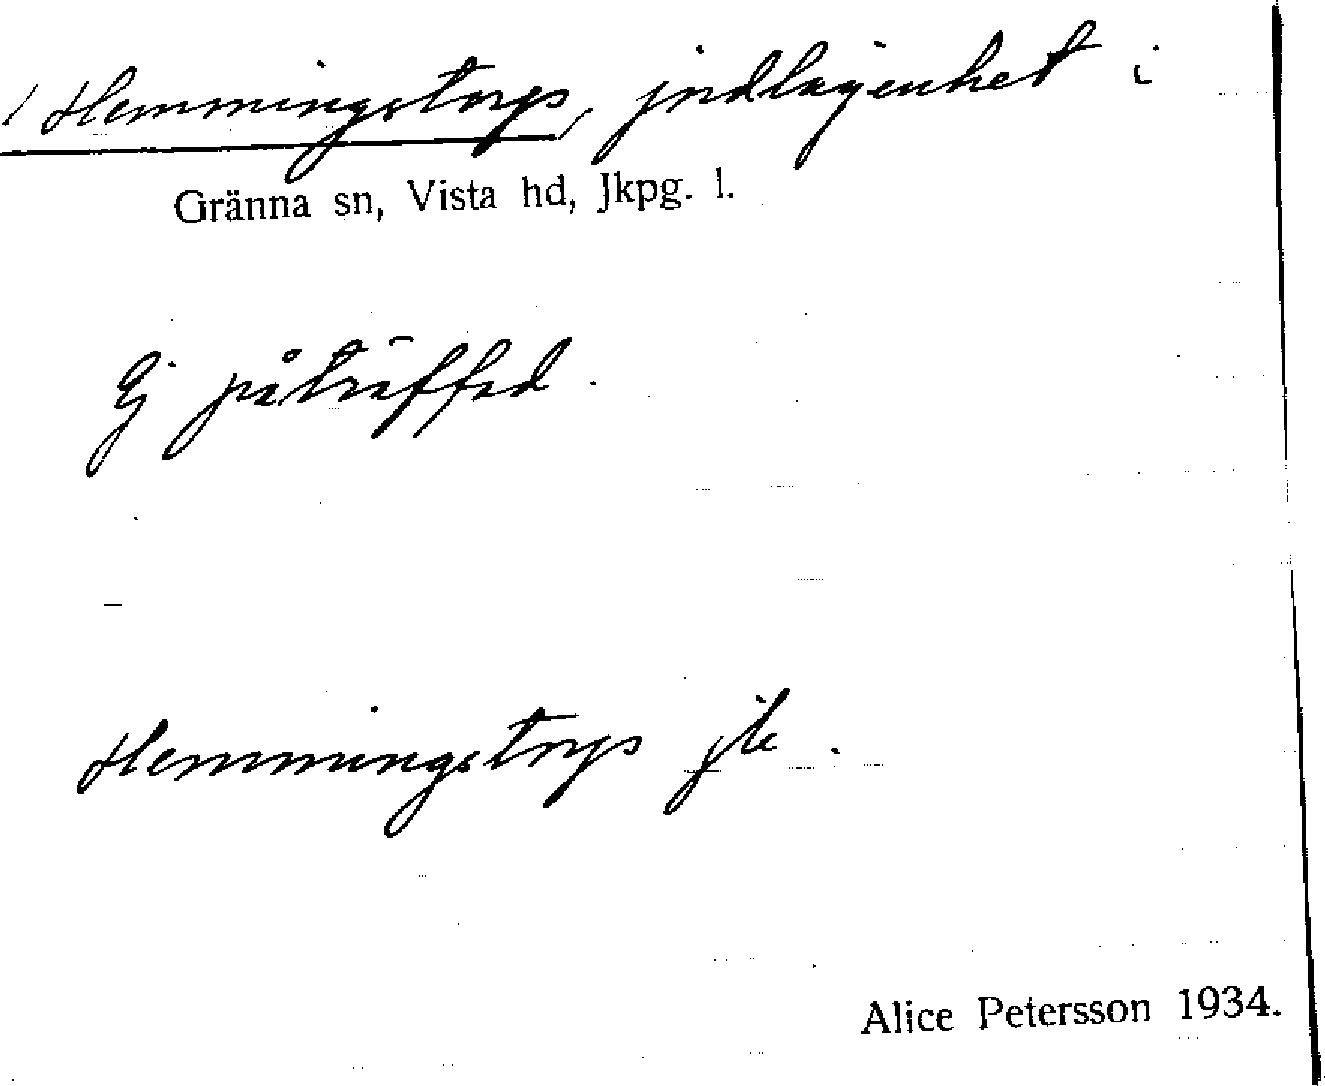 / Hemmingstorp, jordlägenhet i
Gränna sn, Vista hd, Jkpg. l.
Ej påträffad.
Hemmingstorp
Alice Petersson 1934.